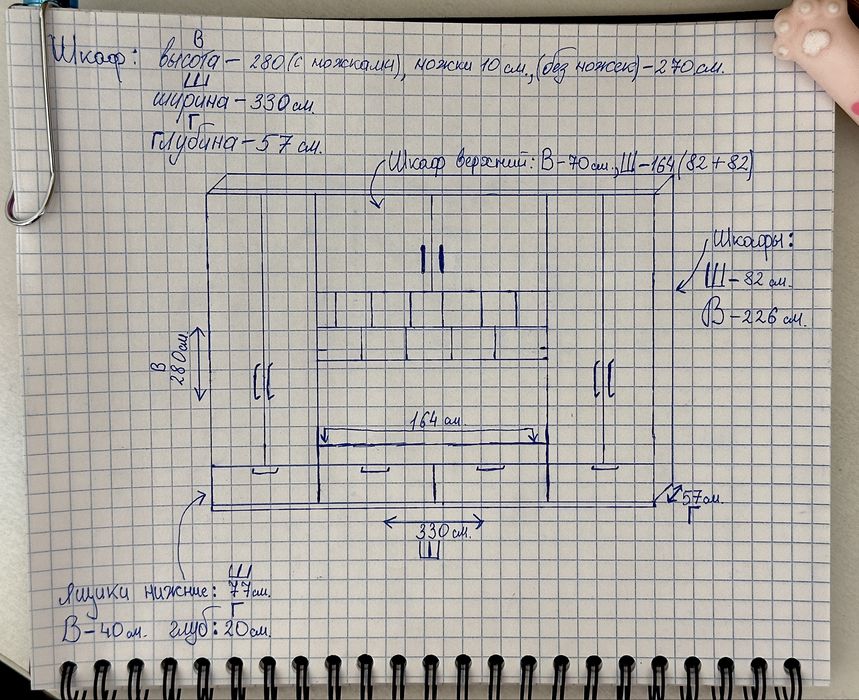 В
Шкаф: высота – 280 (с ножками), ножки 10 см., (без ножек) – 270 см.
Ш
ширина – 330 см.
Г
глубина – 57 см.
Шкаф верхний: В – 70 см., Ш – 164 (82 + 82)
Шкафы:
Ш – 82 см.
В – 226 см.
В
280 см.
164 см.
57 см.
Г
330 см.
Ш
Ш
Ящики нижние: 77 см.
Г
В – 40 см. глуб: 20 см.